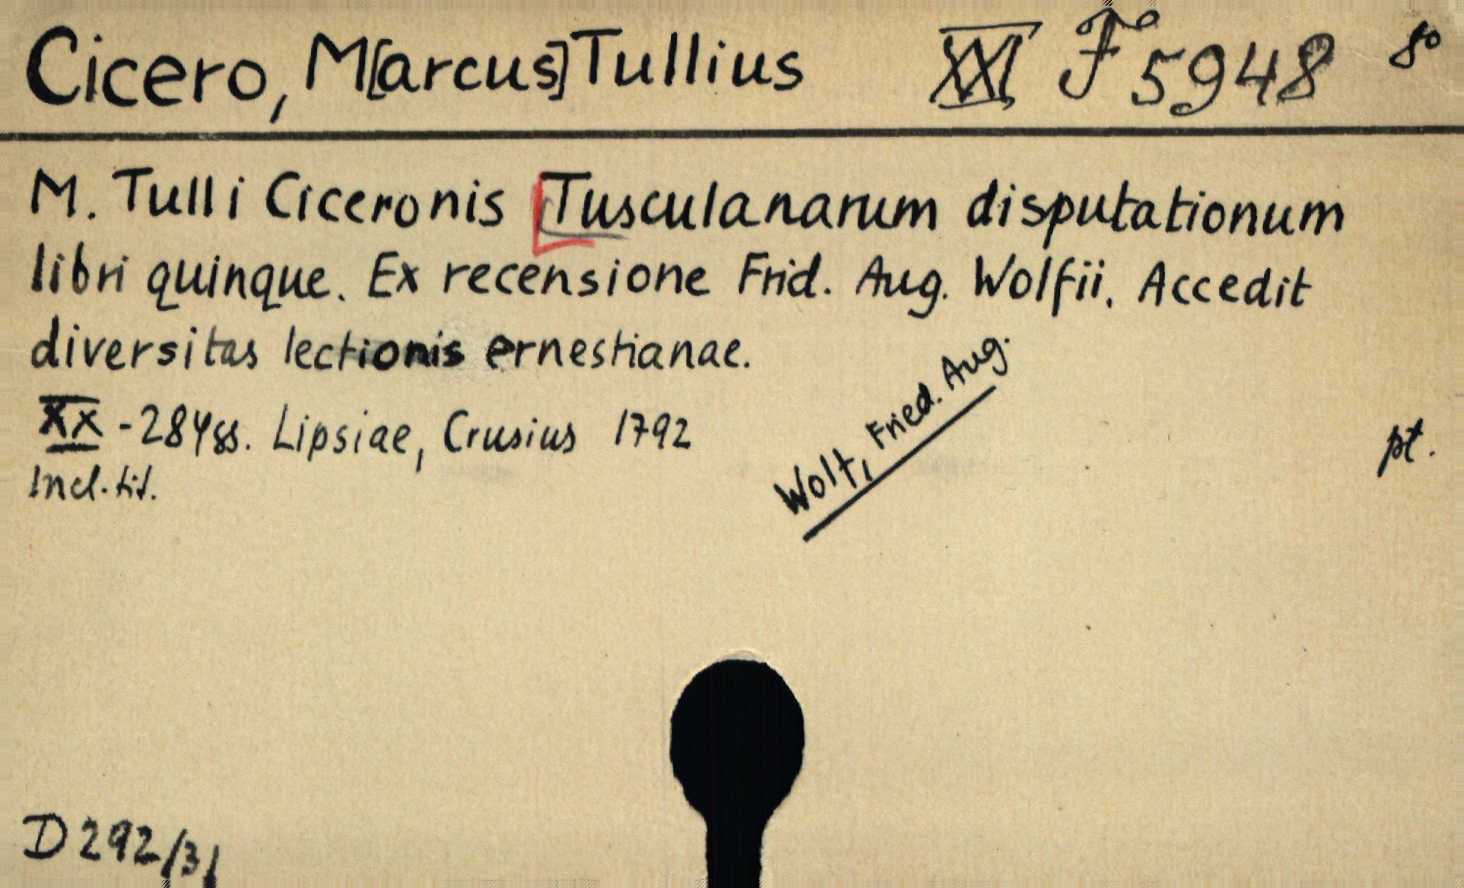 Cicero, M[arcus] Tullius XXI F 5948 8°
M. Tulli Ciceronis Tusculanarum disputationum
libri quinque. Ex recensione Frid. Aug. Wolfii. Accedit
diversitas lectionis ernestianae.
XX - 284 ss. Lipsiae, Crusius 1792
Incl. tit.
Wolf, Fried. Aug.
pt.
D 292/31